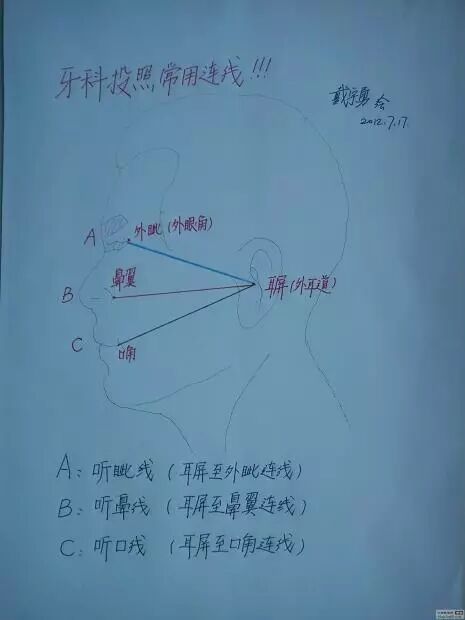 牙科投照常用连线!!!
戴宗勇 绘
2012.7.17.
A
外眦(外眼角)
鼻翼
B
耳屏(外耳道)
C
口角
A: 听眦线 (耳屏至外眦连线)
B: 听鼻线 (耳屏至鼻翼连线)
C: 听口线 (耳屏至口角连线)